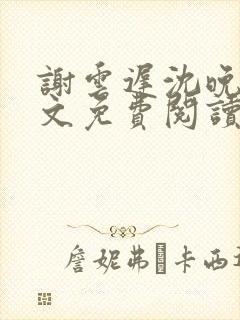 謝雲遲沈晚
文免費閱讀
詹妮弗 卡西